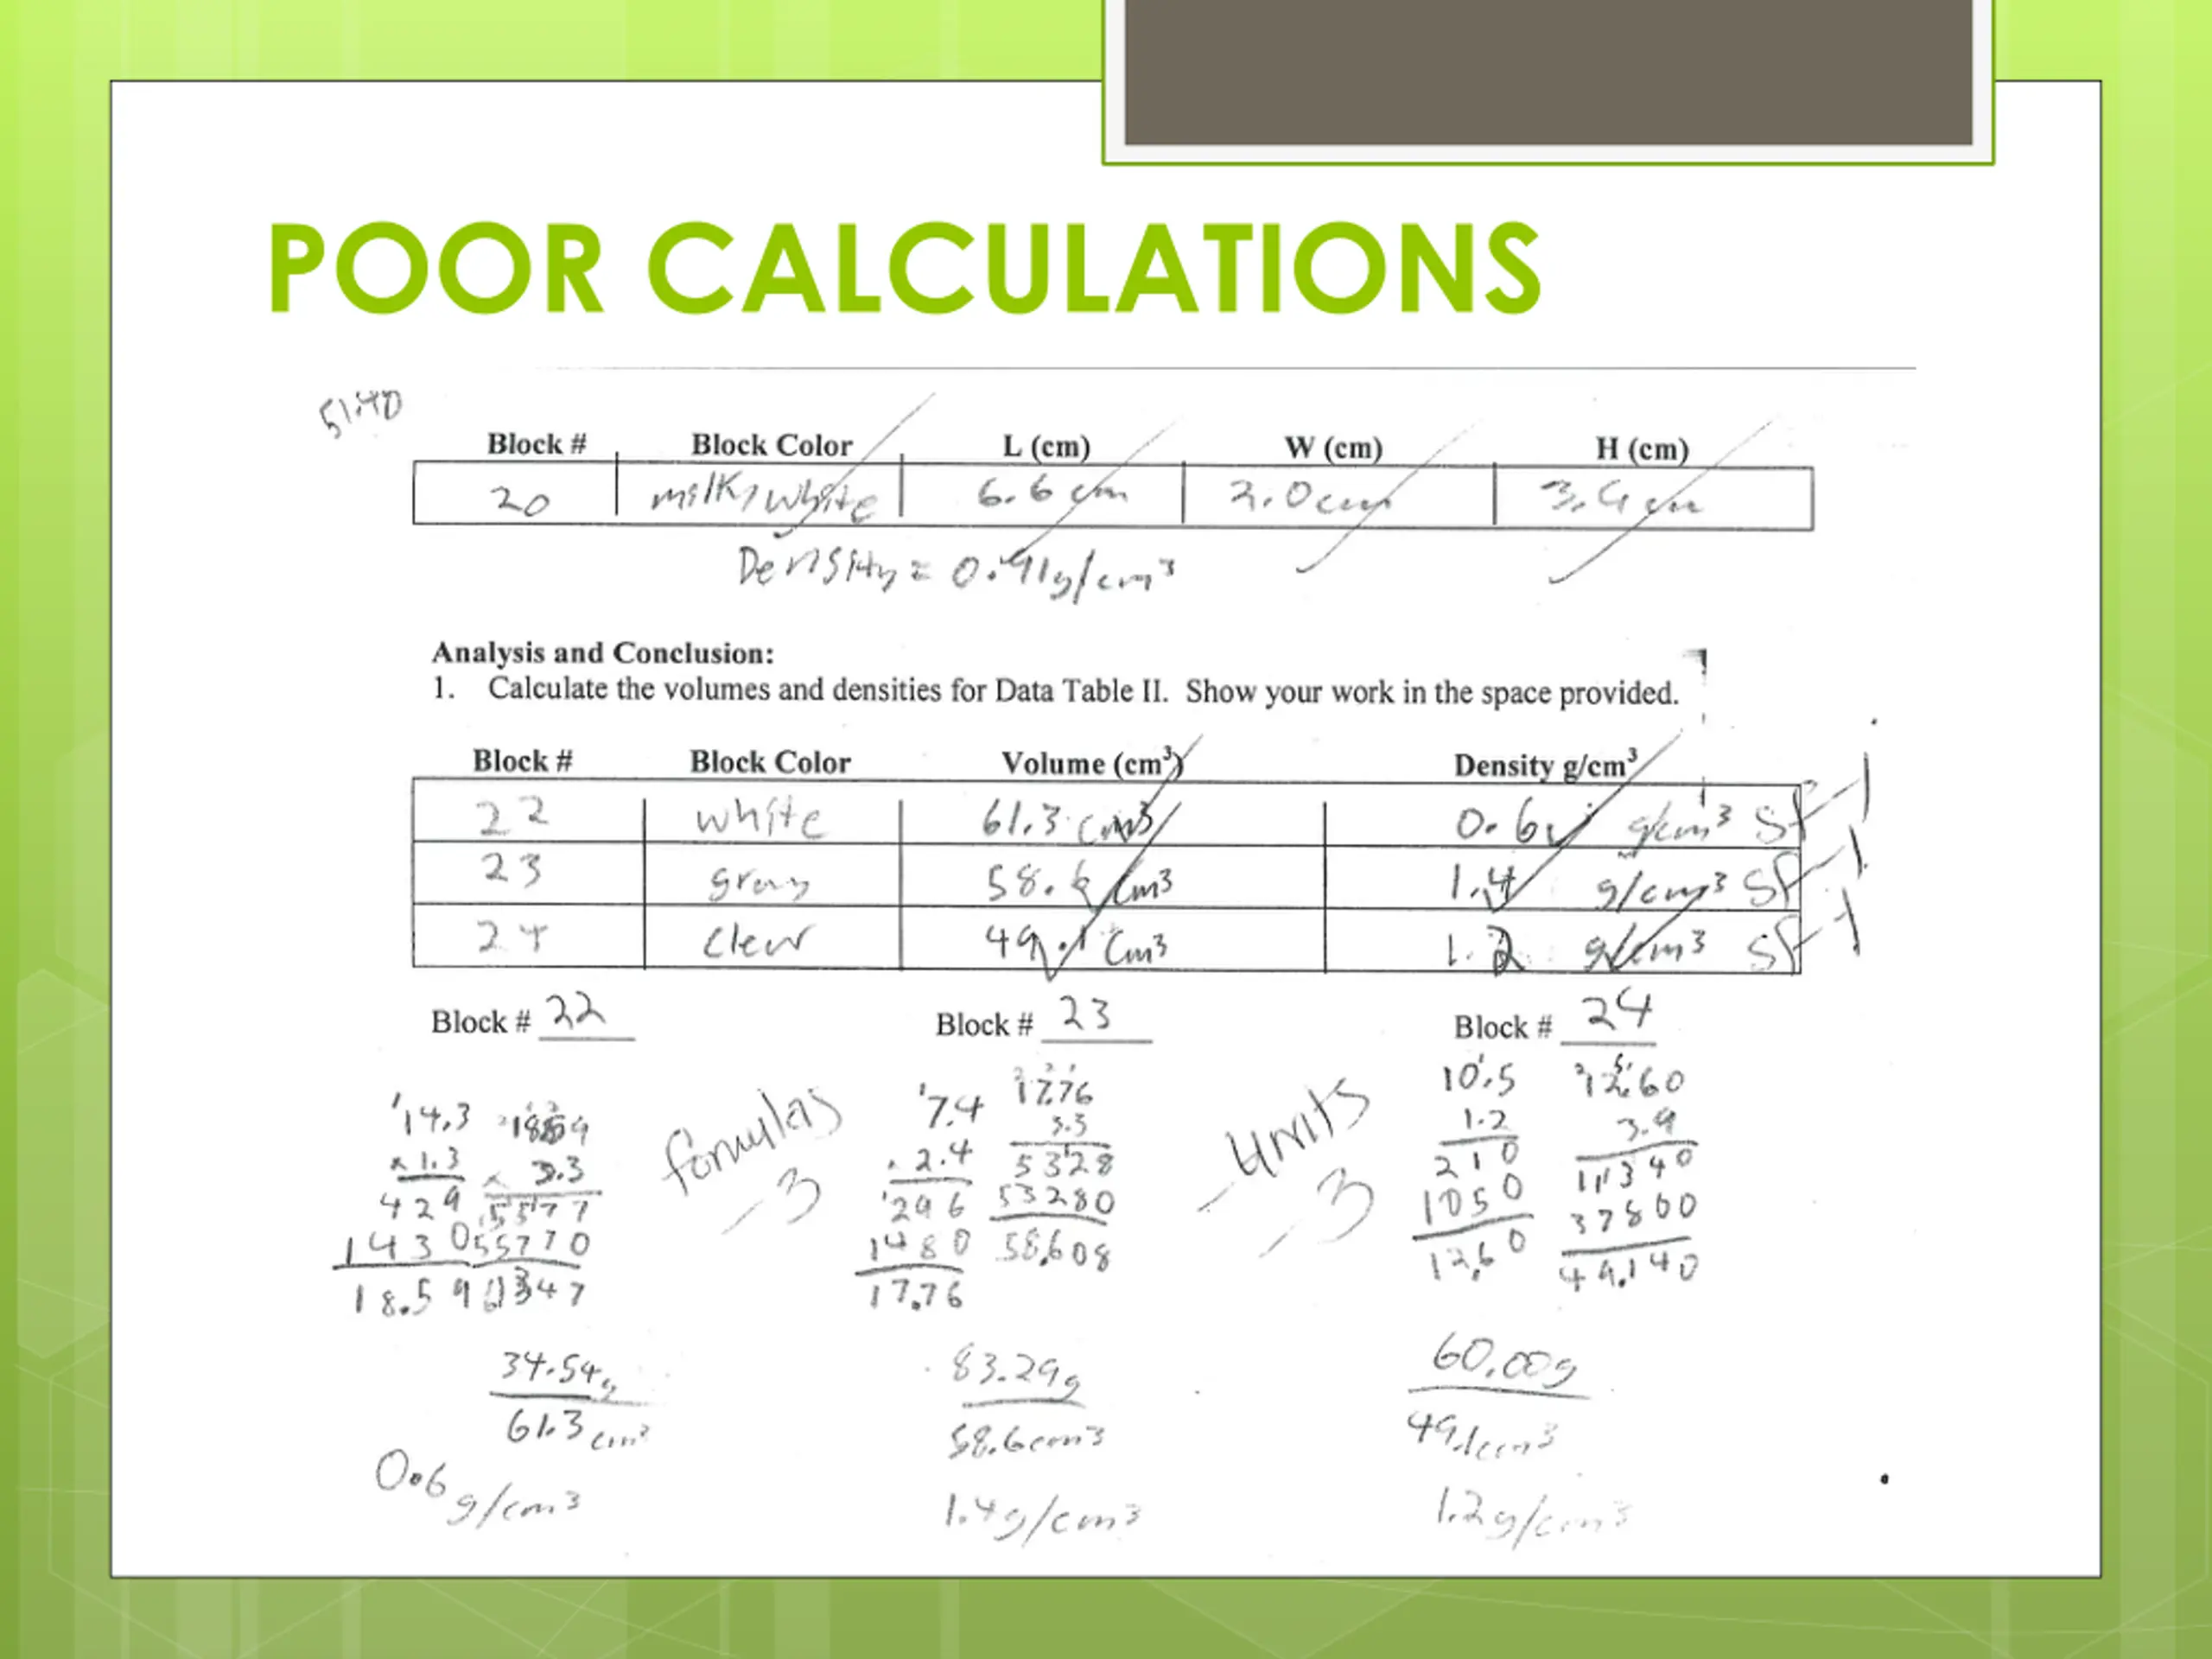 POOR CALCULATIONS
51.40
Block # Block Color L (cm) W (cm) H (cm)
20 milky white 6.6 cm 2.0cm 3.4 cm
Density = 0.91g/cm³
Analysis and Conclusion:
1. Calculate the volumes and densities for Data Table II. Show your work in the space provided.
Block # Block Color Volume (cm³) Density g/cm³
22 white 61.3 cm³ 0.6 g/cm³ SF-1
23 gray 58.6 cm³ 1.4 g/cm³ SF-1
24 clear 49.1 cm³ 1.2 g/cm³ SF-1
Block # 22 Block # 23 Block # 24
14.3 1859 7.4 17.76 10.5 12.60
x 1.3 x 3.3 x 2.4 3.3 1.2 3.9
429 5577 296 5328 210 11340
1430 55770 1480 53280 1050 37800
18.59 61347 17.76 58,608 12.60 49.140
formulas -3
- units -3
34.54g 83.29g 60.00g
61.3 cm³ 58.6cm³ 49.1cm³
0.6 g/cm³ 1.4g/cm³ 1.2g/cm³